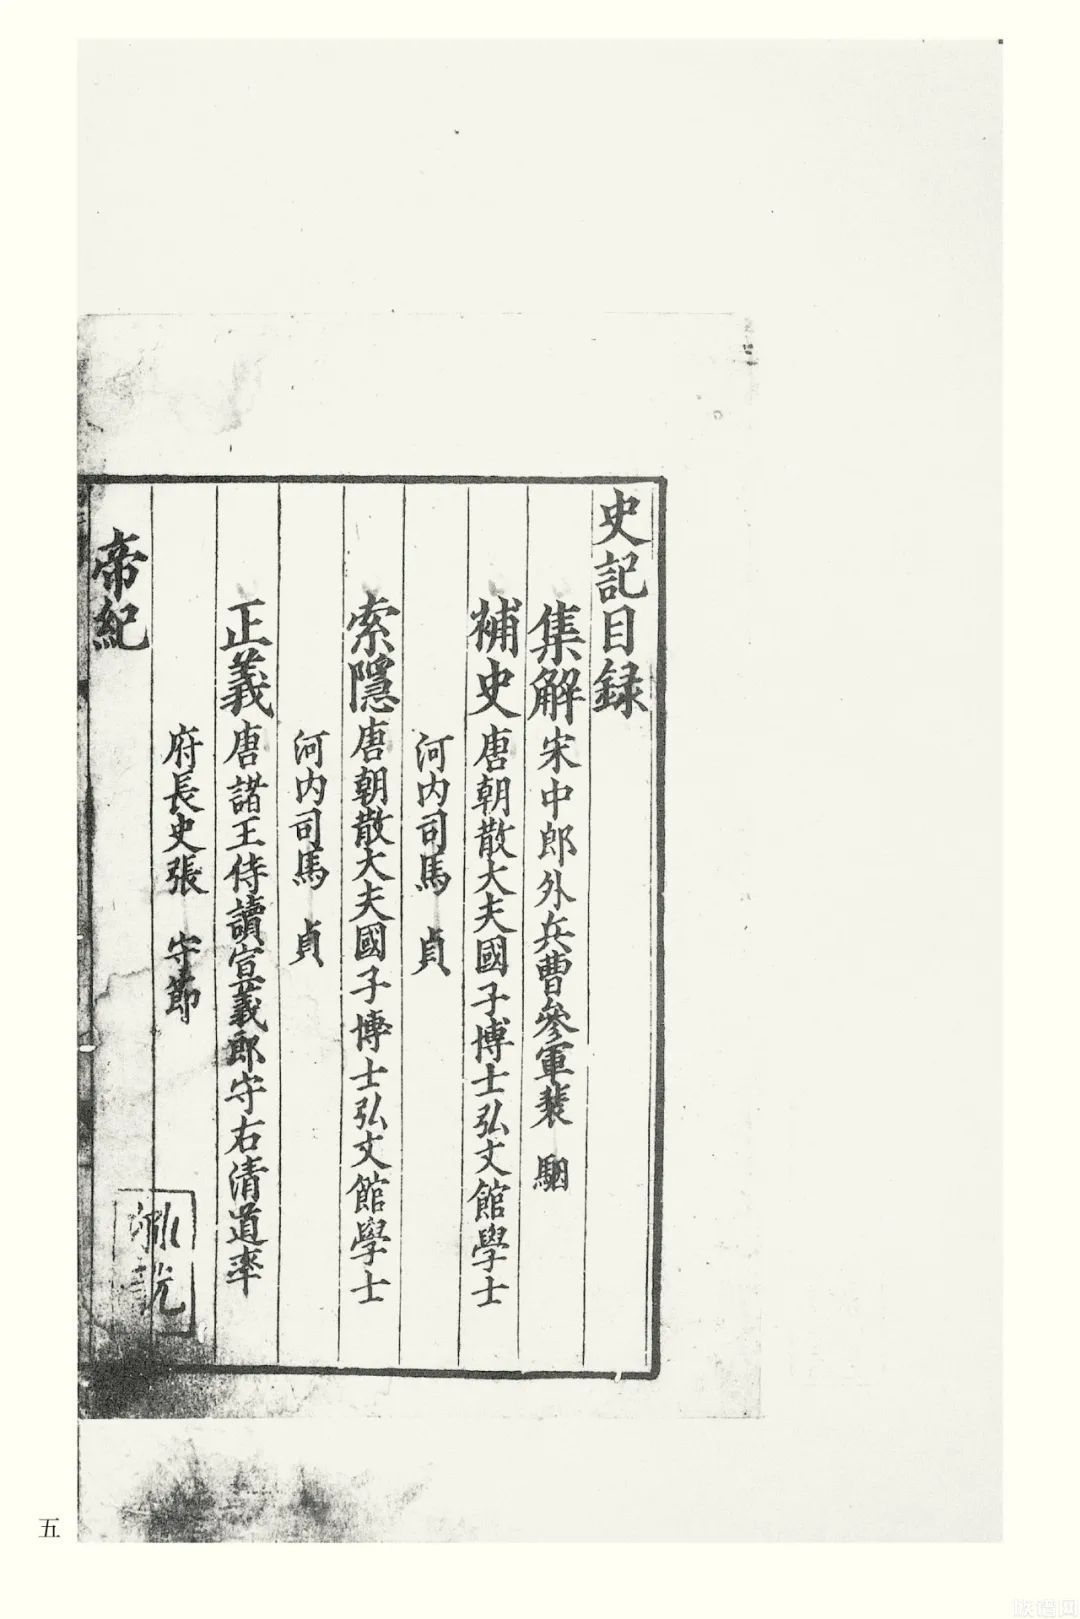 史記目録
集解宋中郎外兵曹參軍裴 駰
補史唐朝散大夫國子博士弘文館學士
河内司馬 貞
索隱唐朝散大夫國子博士弘文館學士
河内司馬 貞
正義唐諸王侍讀宣義郎守右清道率
府長史張 守節
帝紀
五
族谱网